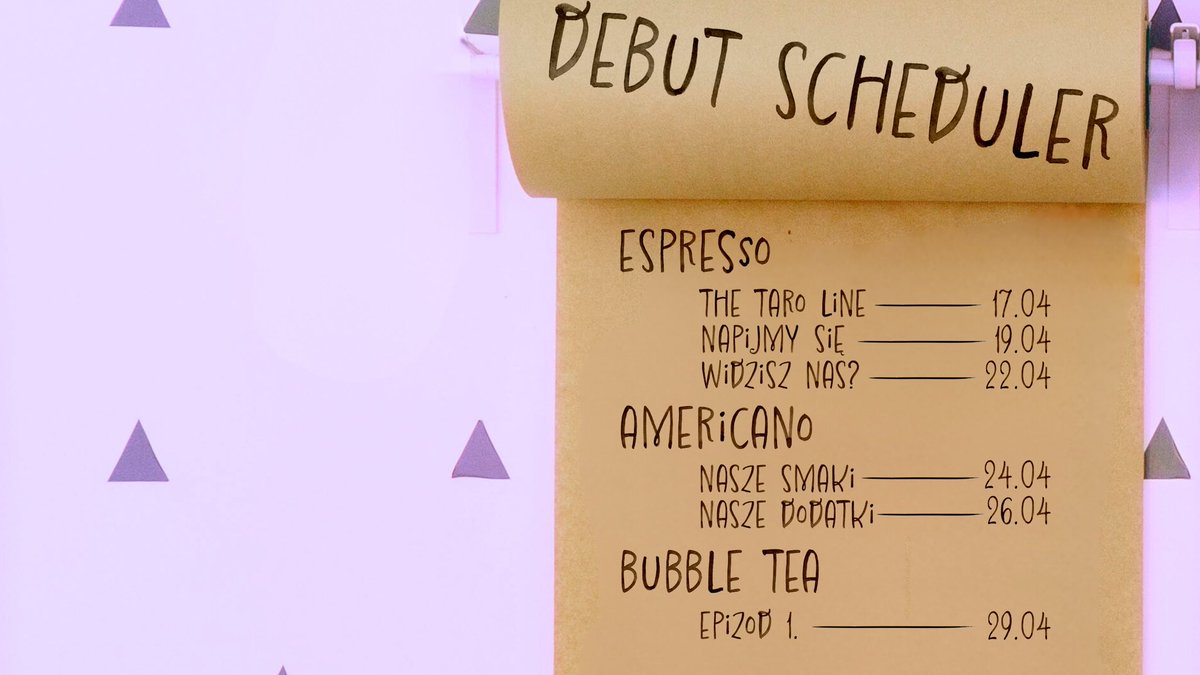 DEBUT SCHEDULER
ESPRESSO
THE TARO LINE 17.04
NAPIJMY SIĘ 19.04
WIDZISZ NAS? 22.04
AMERICANO
NASZE SMAKI 24.04
NASZE DODATKI 26.04
BUBBLE TEA
EPIZOD 1. 29.04